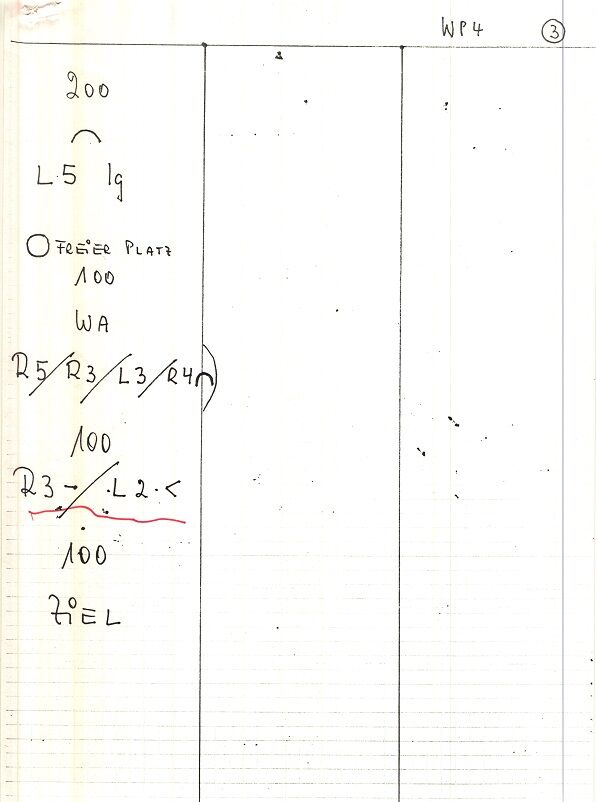 WP4 ③
200
⌒
L5 lg
○ FREIER PLATZ
100
WA
R5/R3/L3/R4⌒)
100
R3-/L2<
100
ZIEL